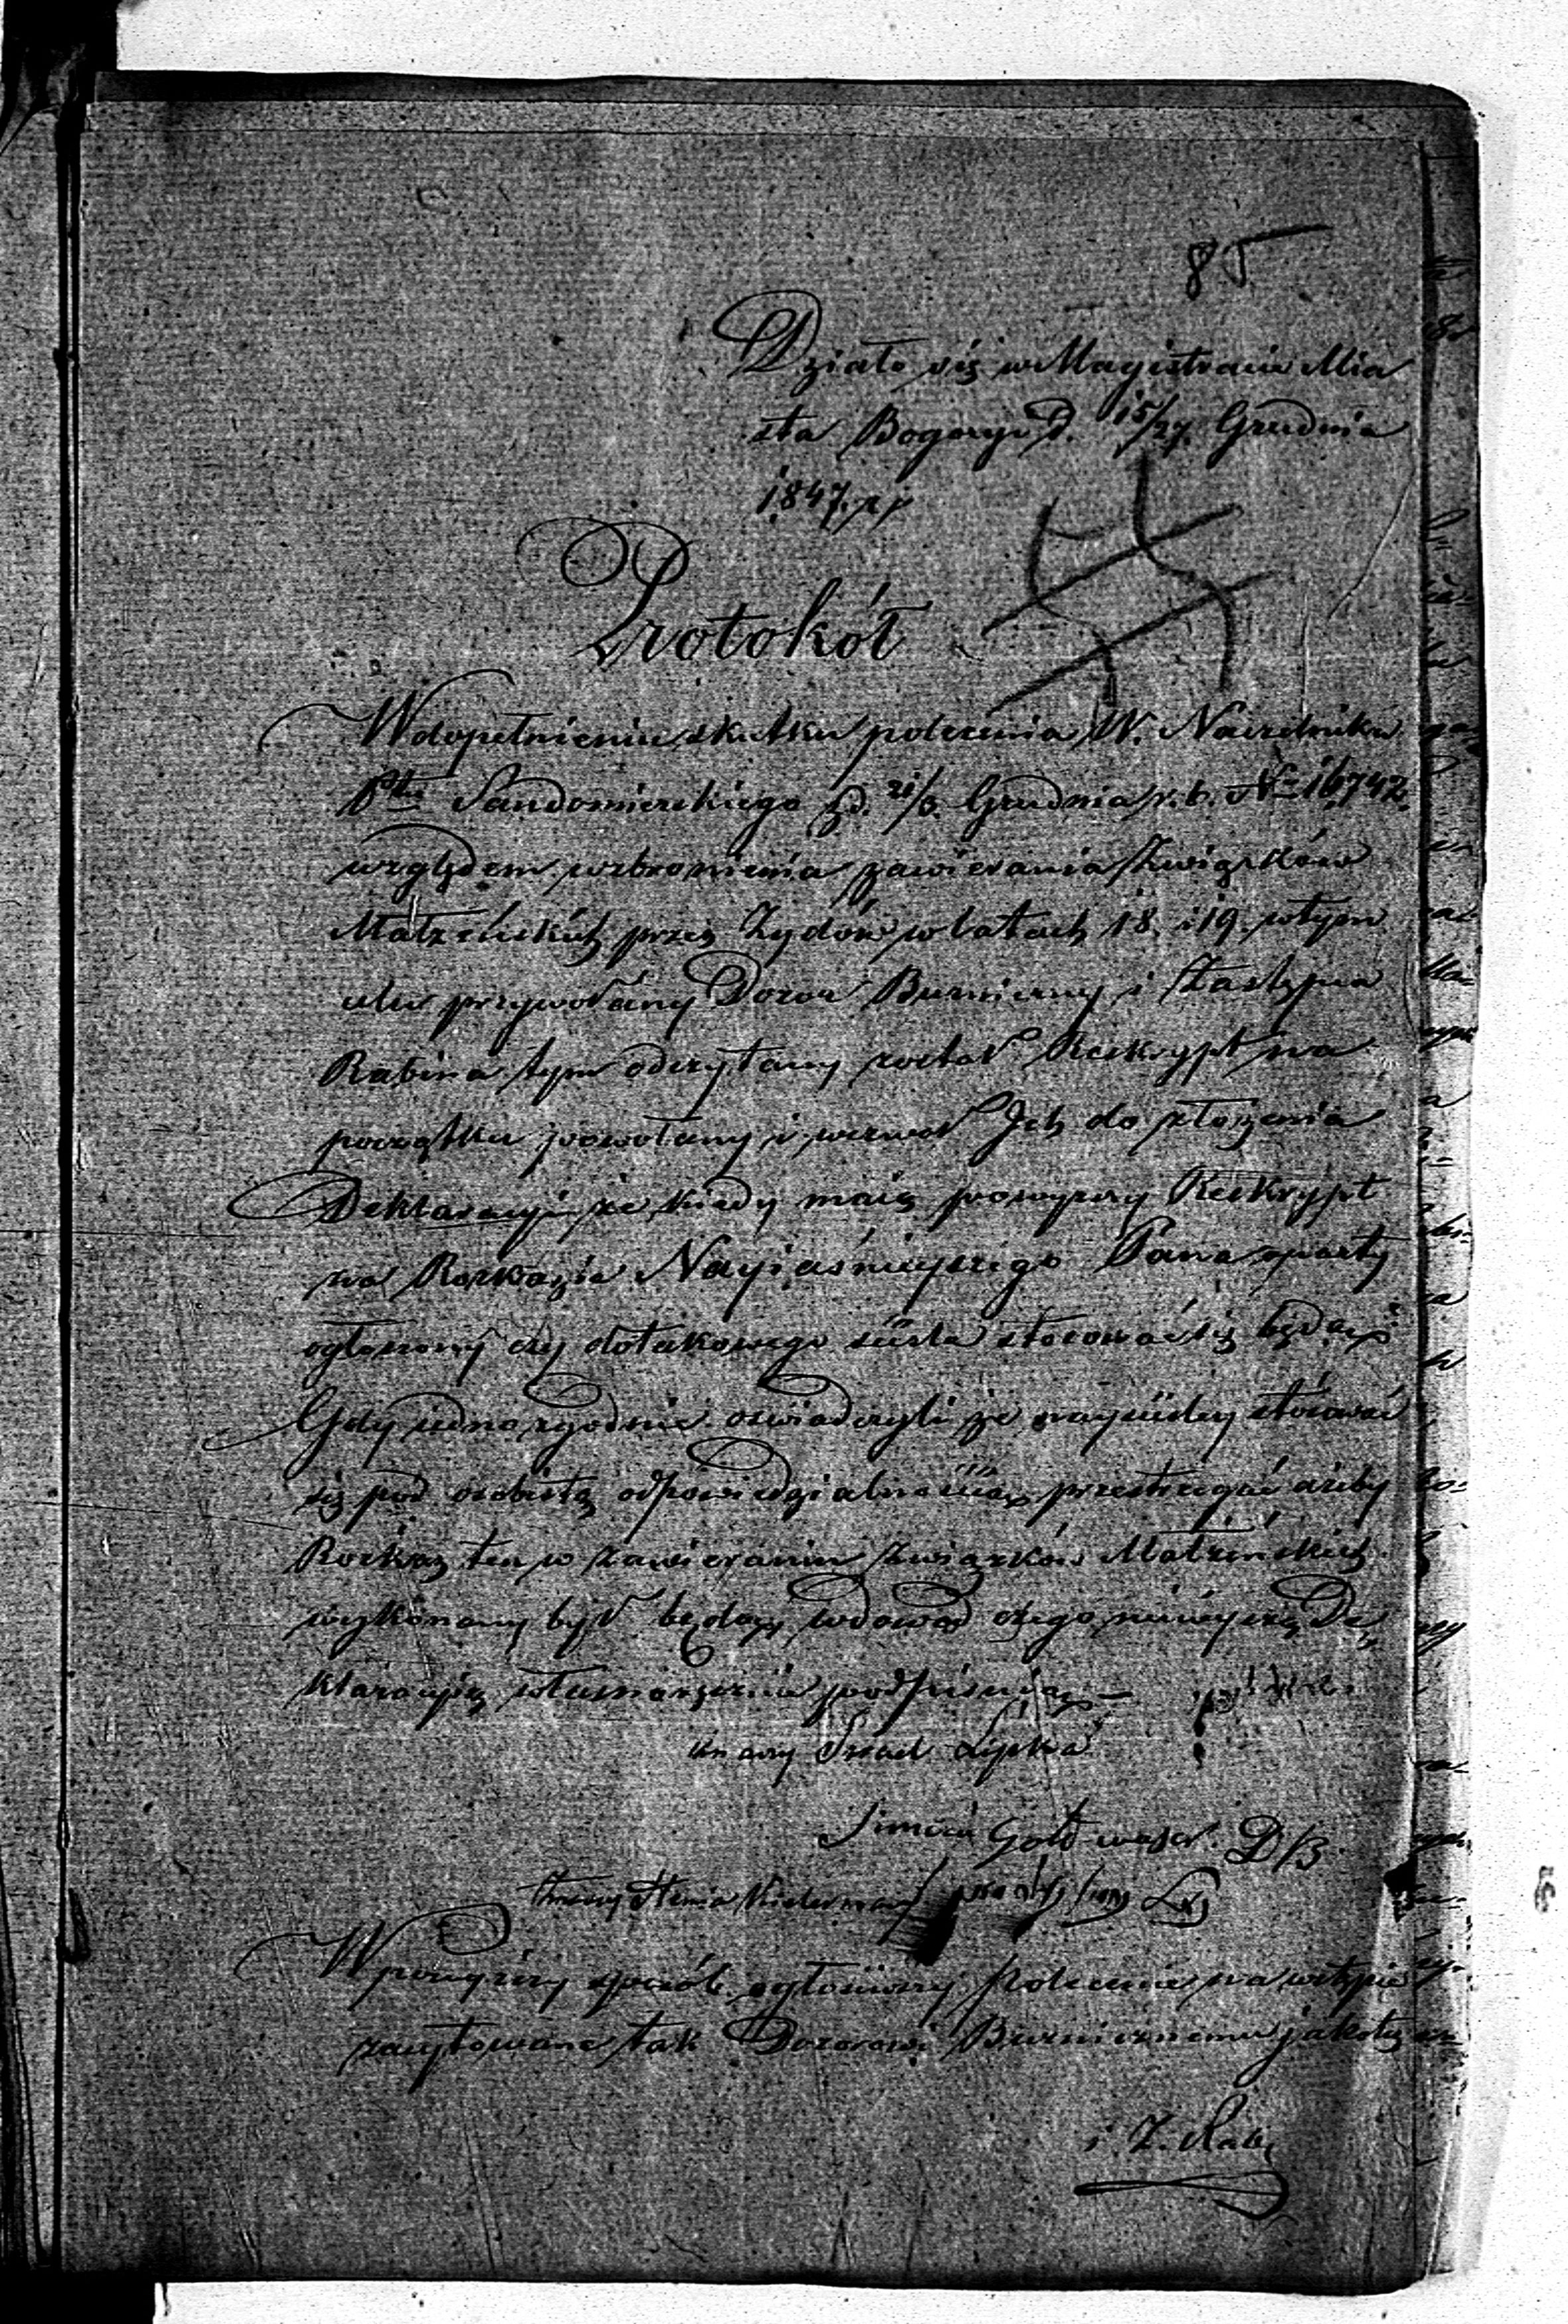 85
Działo się w Magistracie Mia
sta Bogoryi D. 15/27. Grudnia
1847. r
Protokół
W dopełnieniu skutku polecenia W. Naczelnika
Ptu Sandomierskiego z d. 21/3. Grudnia r. b. No 16742
względem wzbronienia zawierania Związków
Małżeńskich przez Żydów w latach 18. i 19. w tym
celu przywołany Dozór Bużniczny i Zastępca
Rabina tym odczytany został Reskrypt na
początku powołany i wezwał Ich do złożenia
Deklaracyi że kiedy maią powyższy Reskrypt
na Rozkazie Nayiaśnieyszego Pana oparty
ogłoszony czy do takowego ściśle stosować się będą?
Gdy iednozgodnie oświadczyli że nayściśley stosować
się pod osobistą odpowiedzialnością przestrzegać ażeby
Rozkaz ten w zawieraniu związków Małżeńskich
wykonany był będą, w dowód czego ninieyszą De
klaracyią własnoręcznie podpisuią
Srael Lipka
Gold waser. D B
W powyższy sposób ogłoszony polecenie na wstępie
zacytowane tak Dozorowi Bużnicznemu jakoteż
i Z. Rab.